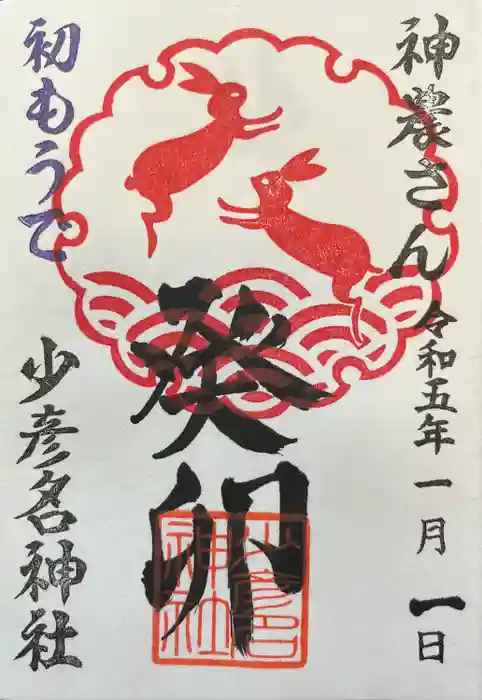 神農さん
令和五年 一月 一日
癸卯
少彦名神社
初もうで
少彦名神社